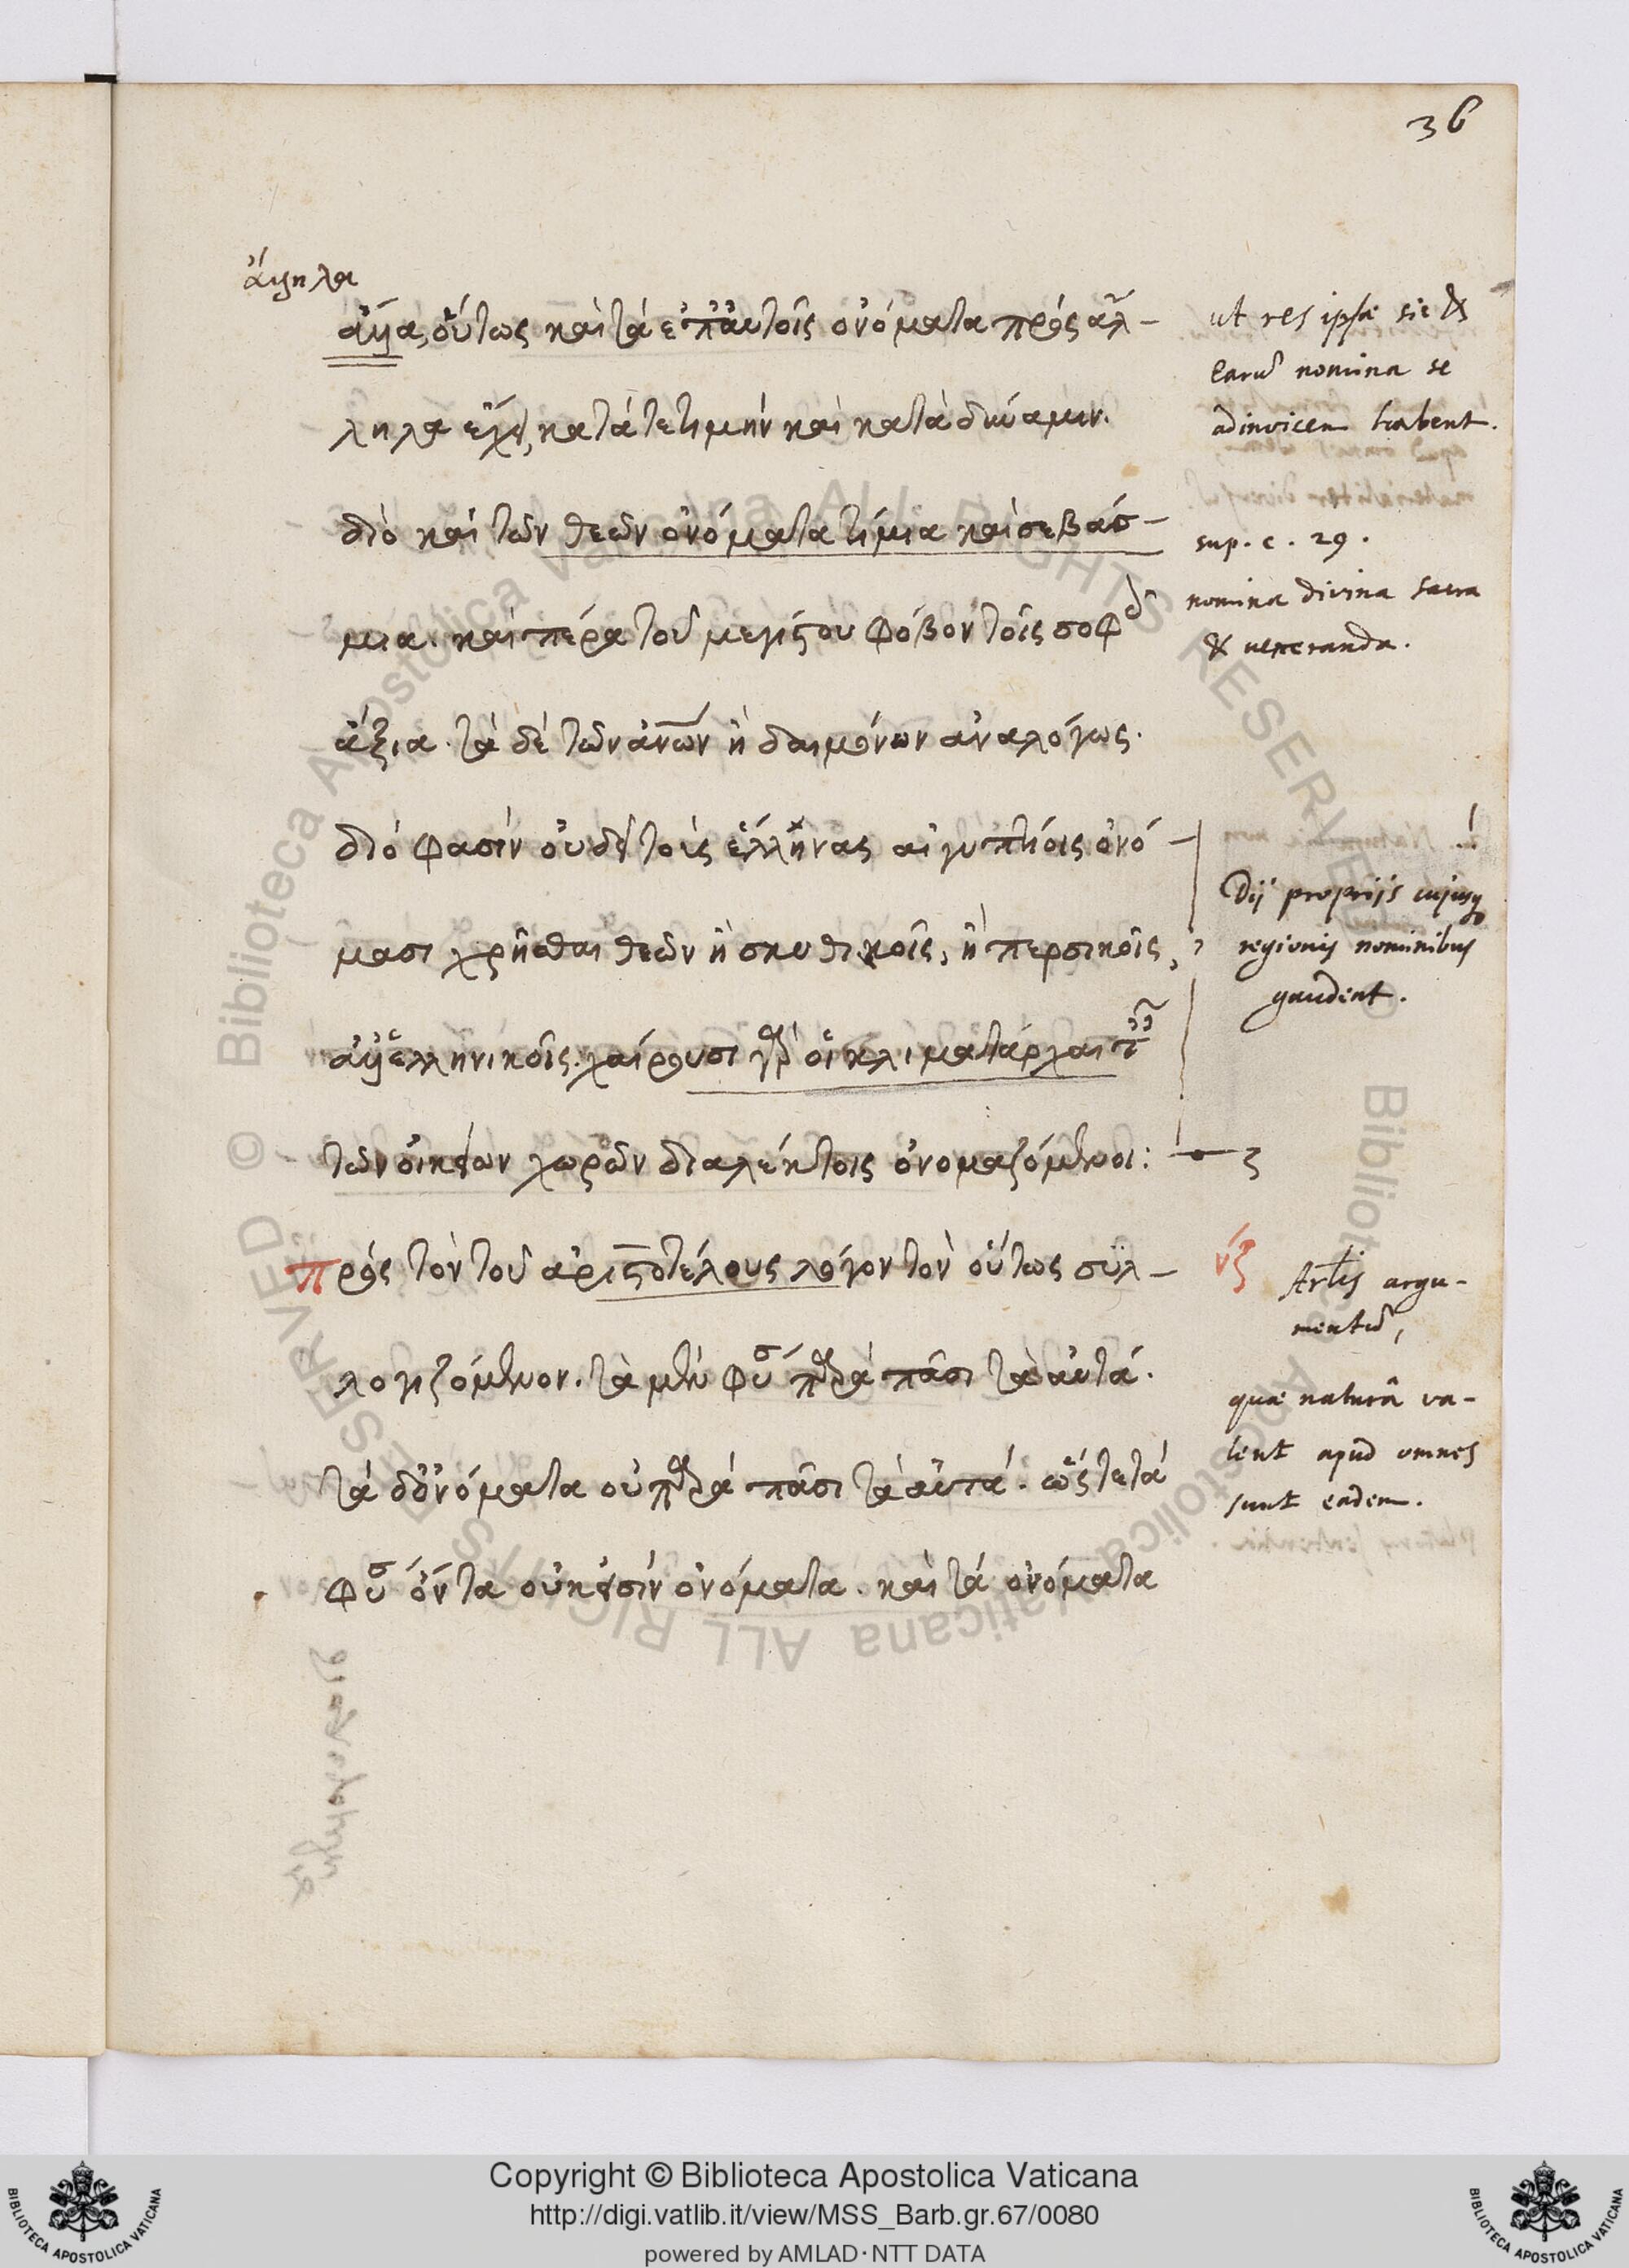 36
ἄλληλα
ἄλλα, οὕτως καὶ τὰ ἐπ' αὐτοῖς ὀνόματα πρὸς ἄλ-
ληλα ἔχει, κατά τε τιμὴν καὶ κατὰ δύναμιν.
διὸ καὶ τῶν θεῶν ὀνόματα τίμια καὶ σεβάσ-
μια. καὶ πέρα τοῦ μεγίστου φόβον τοῖς σοφοῖς
ἄξια. τὰ δὲ τῶν ἀνῶν ἢ δαιμόνων ἀναλόγως.
διό φασιν οὐδὲ τοὺς ἕλληνας αἰγυπτίοις ὀνό-
μασι χρῆσθαι θεῶν ἢ σκυθικοῖς, ἢ περσικοῖς,
ἀλλ' ἑλληνικοῖς. χαίρουσι γὰρ οἱ κλιματάρχαι
τῶν οἰκείων χωρῶν διαλέκτοις ὀνομαζόμενοι:
πρὸς τὸν τοῦ ἀριστοτέλους λόγον τὸν οὕτως συλ-
λογιζόμενον. τὰ μὲν φύσει παρὰ πᾶσι τὰ αὐτά.
τὰ δ' ὀνόματα οὐ παρὰ πᾶσι τὰ αὐτά. ὥστε τὰ
φύσει ὄντα οὐκ εἰσὶν ὀνόματα. καὶ τὰ ὀνόματα
ut res ipsæ sic &
earũ nomina se
adinvicem habent.
sup. c. 29.
nomina divina sacra
& veneranda.
Dij propriis cujusq
regionis nominibus
gaudent.
νζ
Artis argu-
mentũ,
quæ naturâ va-
lent apud omnes
sunt eadem.
Copyright © Biblioteca Apostolica Vaticana
http://digi.vatlib.it/view/MSS_Barb.gr.67/0080
powered by AMLAD·NTT DATA
BIBLIOTECA APOSTOLICA VATICANA
BIBLIOTECA APOSTOLICA VATICANA